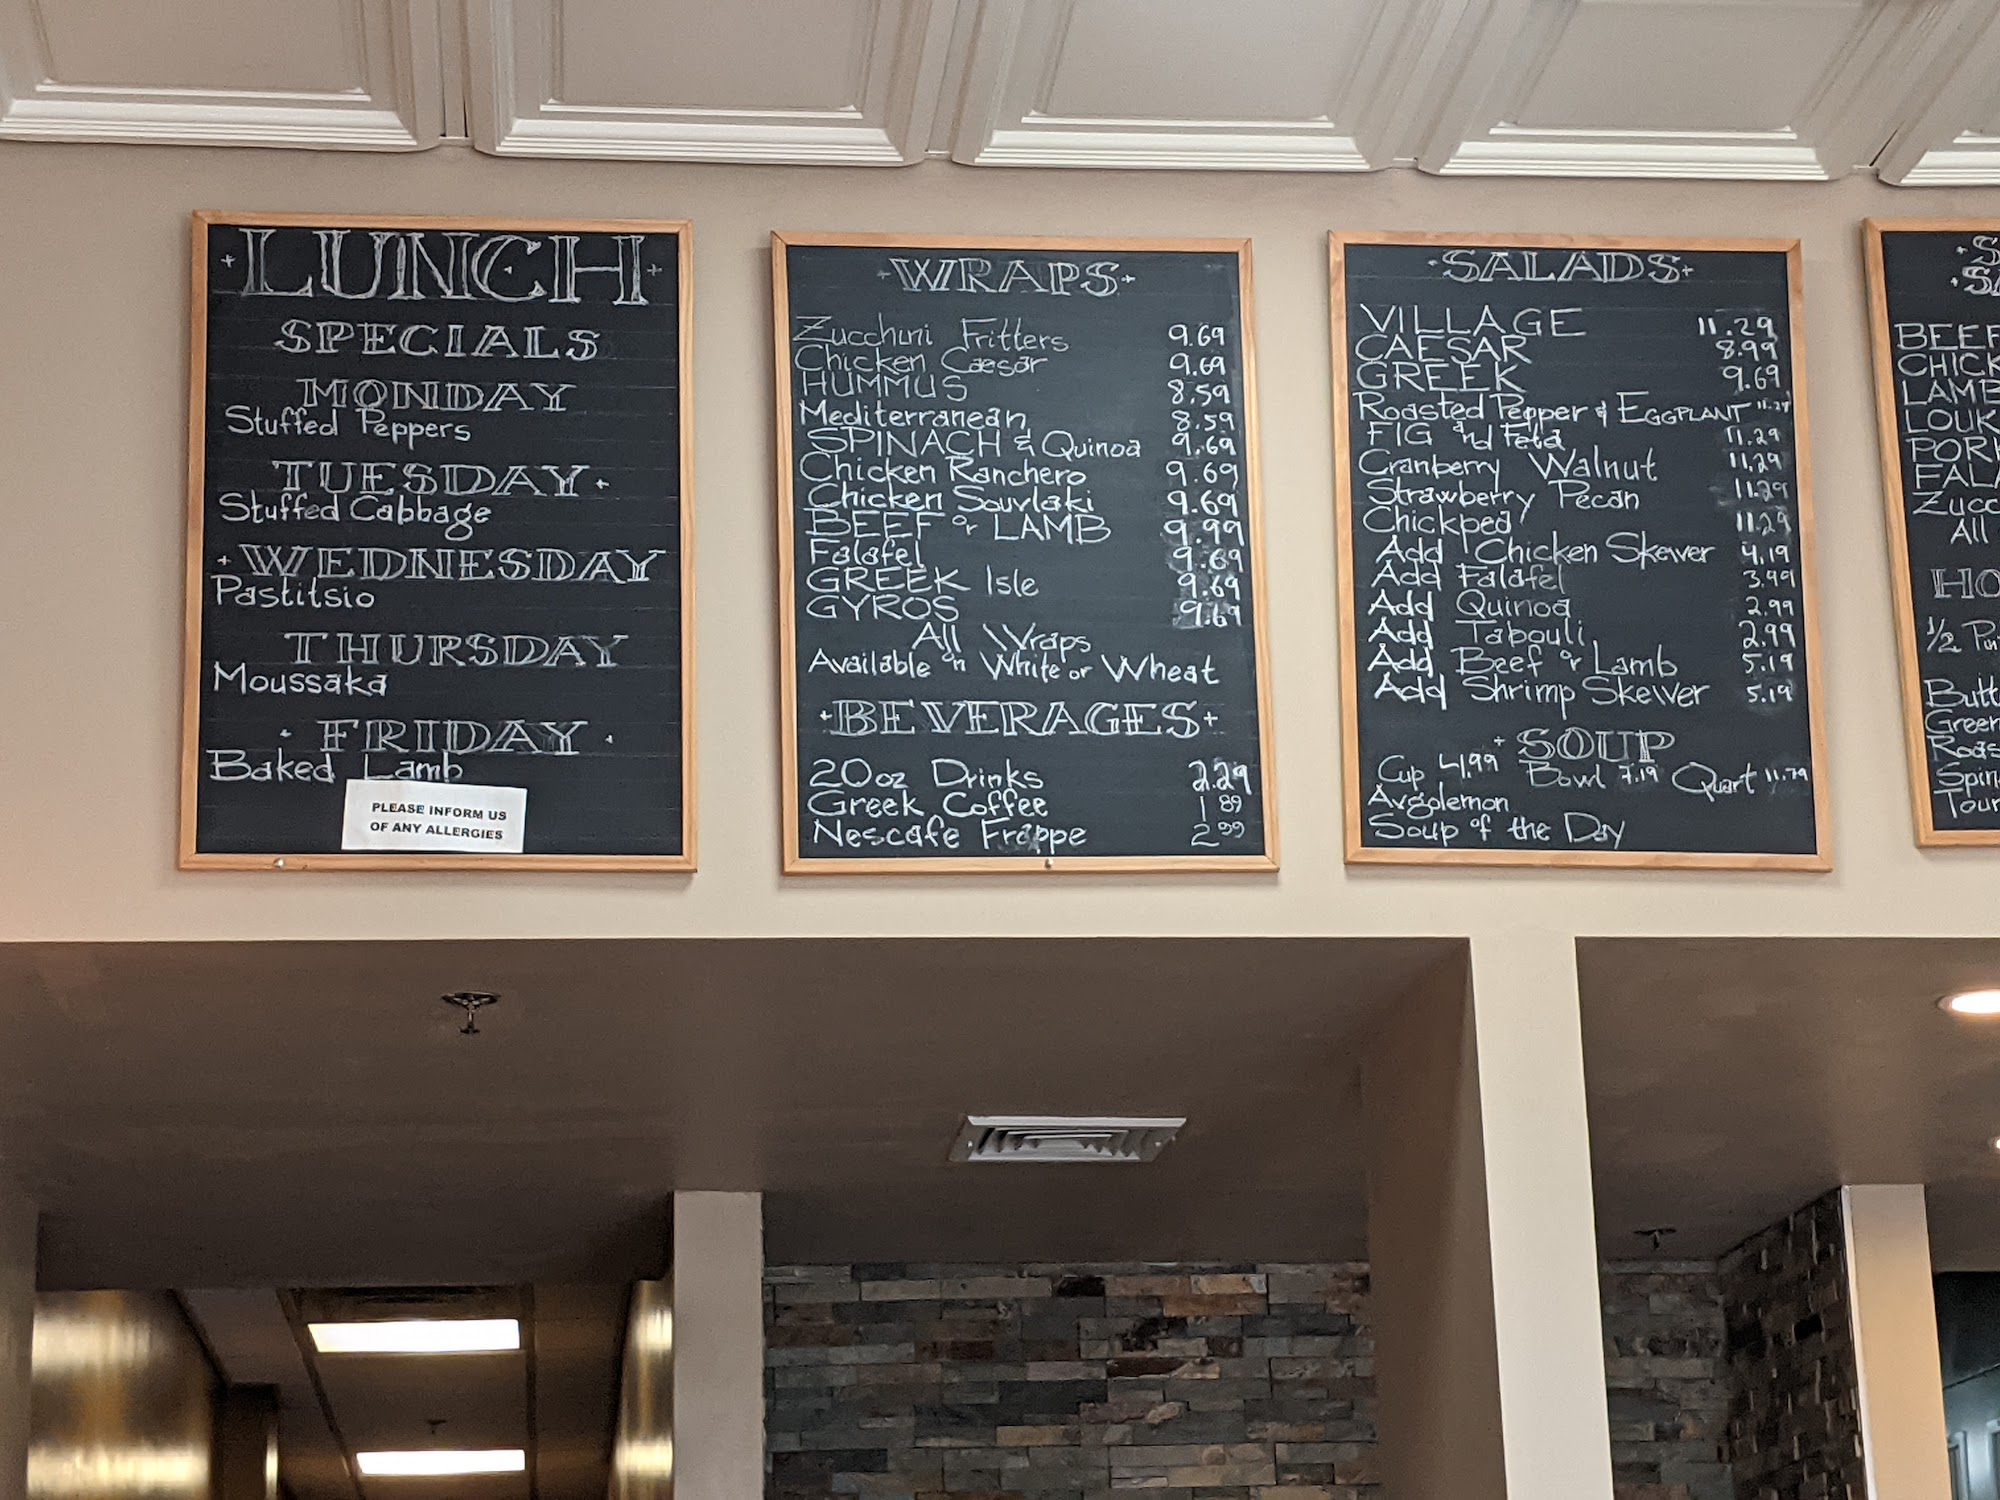 LUNCH
SPECIALS
MONDAY
Stuffed Peppers
TUESDAY
Stuffed Cabbage
WEDNESDAY
Pastitsio
THURSDAY
Moussaka
FRIDAY
Baked Lamb
PLEASE INFORM US
OF ANY ALLERGIES
WRAPS
Zucchini Fritters 9.69
Chicken Caesar 9.69
HUMMUS 8.59
Mediterranean 8.59
SPINACH & Quinoa 9.69
Chicken Ranchero 9.69
Chicken Souvlaki 9.69
BEEF or LAMB 9.99
Falafel 9.69
GREEK Isle 9.69
GYROS 9.69
All Wraps
Available on White or Wheat
BEVERAGES
20oz Drinks 2.29
Greek Coffee 1 89
Nescafe Frappe 2 99
SALADS
VILLAGE 11.29
CAESAR 8.99
GREEK 9.69
Roasted Pepper & EGGPLANT 11.29
FIG and Feta 11.29
Cranberry Walnut 11.29
Strawberry Pecan 11.29
Chickpea 11.29
Add Chicken Skewer 4.19
Add Falafel 3.99
Add Quinoa 2.99
Add Tabouli 2.99
Add Beef or Lamb 5.19
Add Shrimp Skewer 5.19
SOUP
Cup 4.99 Bowl 7.19 Quart 11.79
Avgolemon
Soup of the Day
BEEF
CHICK
LAMB
LOUK
PORK
FALA
Zucc
All
HO
1/2
Butt
Green
Roas
Spin
Tour